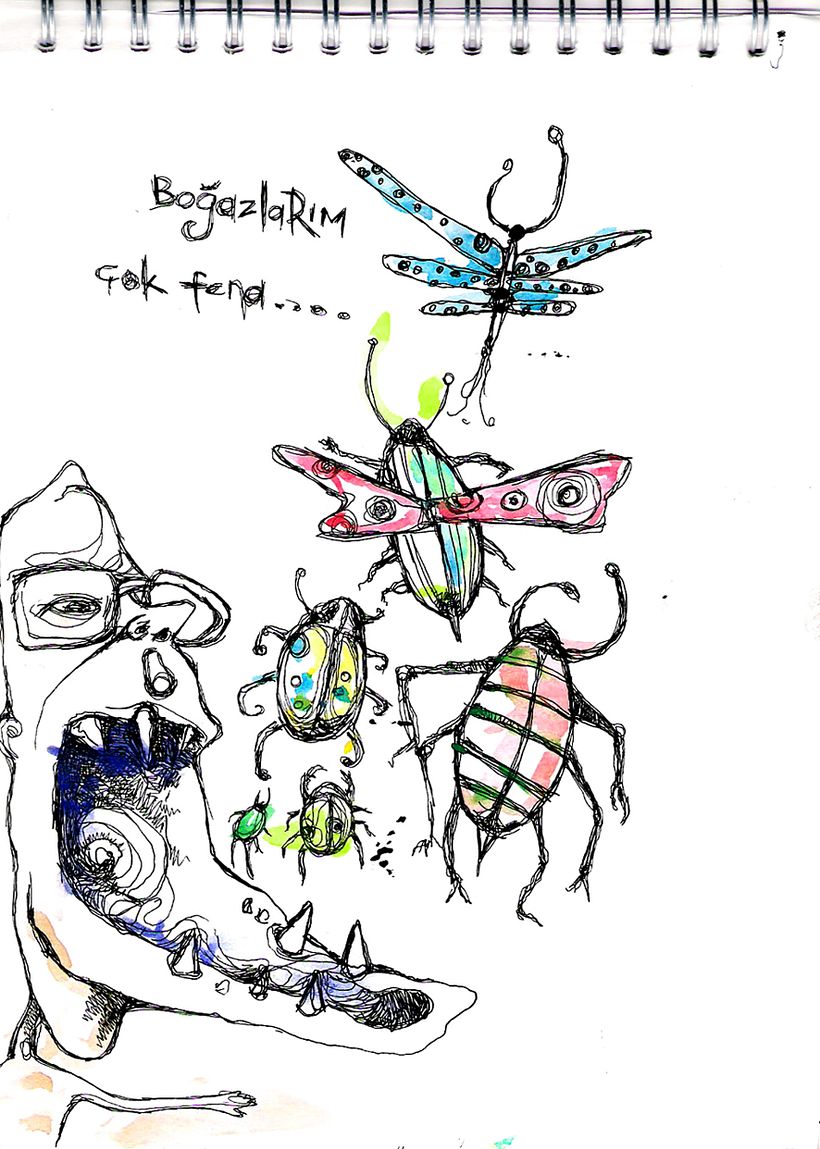 BoğazlaRIM
çok fena.....